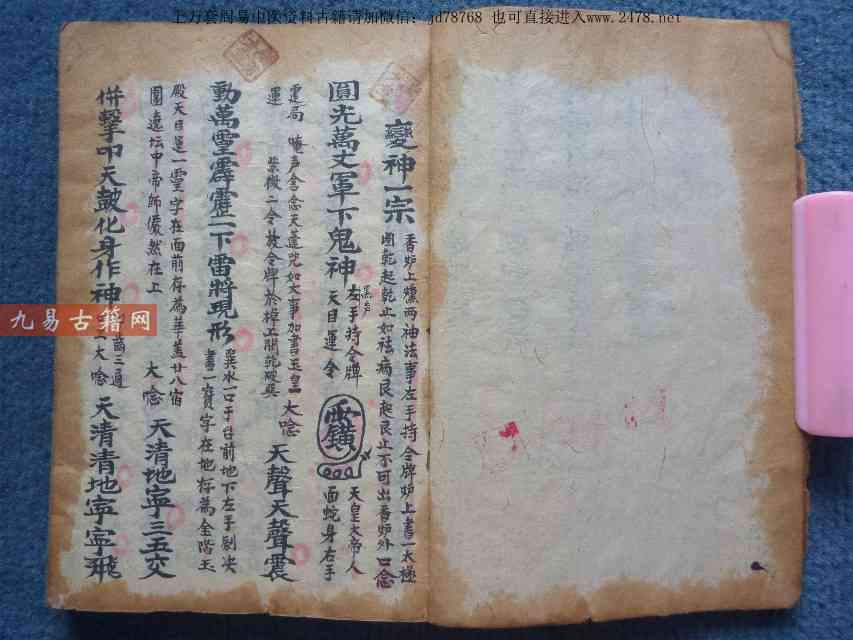 上万套周易中医资料古籍请加微信：jd78768 也可直接进入www.2478.net
變神一宗 香炉上燻两袖法事左手持令牌炉上書一太極
圈乾起乾止如祛病艮起艮止不可出香炉外口念
圓光萬丈軍下鬼神 左手持令牌
天目運令
天皇大帝人
面蛇身右手
運局 唵声含念天蓬咒如大事加書玉皇
運 紫微二令放令牌於棹上開乾破巽 大唸 天聲天聲震
動萬靈霹靂一下雷將現形 巽水一口于台前地下左手剔决
書一寶字在地存為金階玉
殿天目運一靈字在面前存為華盖廿八宿
圍遶坛中帝師儼然在上 大唸 天清地寧三五交
併擊叩天鼓化身作神 齒三通
大唸 天清清地寧寧飛
九易古籍网